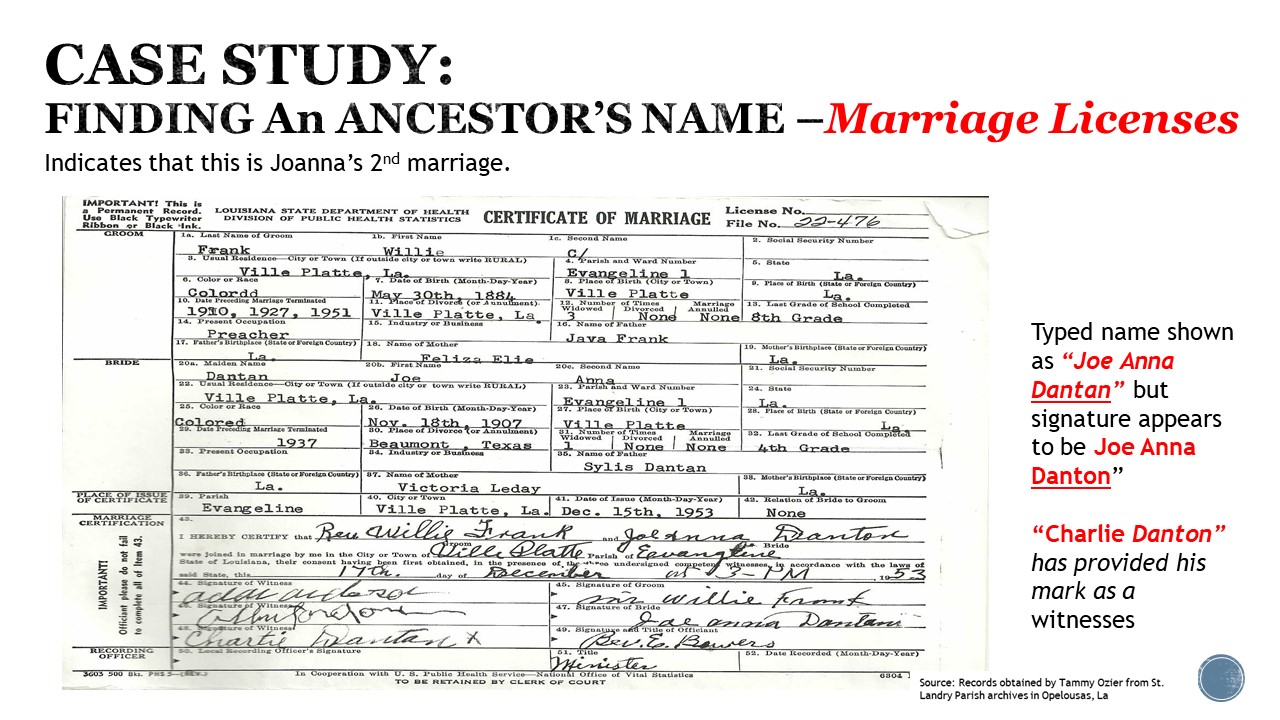 CASE STUDY:
FINDING An ANCESTOR'S NAME –Marriage Licenses
Indicates that this is Joanna's 2nd marriage.
IMPORTANT! This is
a Permanent Record.
Use Black Typewriter
Ribbon or Black Ink.
LOUISIANA STATE DEPARTMENT OF HEALTH
DIVISION OF PUBLIC HEALTH STATISTICS
CERTIFICATE OF MARRIAGE
License No.
File No. 22-476
GROOM
1a. Last Name of Groom 1b. First Name 1c. Second Name 2. Social Security Number
Frank Willie C/
3. Usual Residence—City or Town (If outside city or town write RURAL) 4. Parish and Ward Number 5. State
Ville Platte, La. Evangeline 1 La.
6. Color or Race 7. Date of Birth (Month-Day-Year) 8. Place of Birth (City or Town) 9. Place of Birth (State or Foreign Country)
Colordd May 30th, 1884 Ville Platte La.
10. Date Preceding Marriage Terminated 11. Place of Divorce (or Annulment) 12. Number of Times Widowed Divorced Marriage Annulled 13. Last Grade of School Completed
1910, 1927, 1951 Ville Platte, La. 3 None None 8th Grade
14. Present Occupation 15. Industry or Business 16. Name of Father
Preacher Java Frank
17. Father's Birthplace (State or Foreign Country) 18. Name of Mother 19. Mother's Birthplace (State or Foreign Country)
La. Feliza Elie La.
BRIDE
20a. Maiden Name 20b. First Name 20c. Second Name 21. Social Security Number
Dantan Joe Anna
22. Usual Residence—City or Town (If outside city or town write RURAL) 23. Parish and Ward Number 24. State
Ville Platte, La. Evangeline 1 La.
25. Color or Race 26. Date of Birth (Month-Day-Year) 27. Place of Birth (City or Town) 28. Place of Birth (State or Foreign Country)
Colored Nov. 18th, 1907 Ville Platte La.
29. Date Preceding Marriage Terminated 30. Place of Divorce (or Annulment) 31. Number of Times Widowed Divorced Marriage Annulled 32. Last Grade of School Completed
1937 Beaumont, Texas 1 None None 4th Grade
33. Present Occupation 34. Industry or Business 35. Name of Father
Sylis Dantan
36. Father's Birthplace (State or Foreign Country) 37. Name of Mother 38. Mother's Birthplace (State or Foreign Country)
La. Victoria Leday La.
PLACE OF ISSUE
OF CERTIFICATE
39. Parish 40. City or Town 41. Date of Issue (Month-Day-Year) 42. Relation of Bride to Groom
Evangeline Ville Platte, La. Dec. 15th, 1953 None
MARRIAGE
CERTIFICATION
IMPORTANT!
Official please do not fail
to complete all of Item 43.
43.
I HEREBY CERTIFY that Rev. Willie Frank and Joe Anna Danton
Groom Bride
were joined in marriage by me in the City or Town of Ville Platte Parish of Evangeline
State of Louisiana, their consent having been first obtained, in the presence of the undersigned competent witnesses, in accordance with the laws of
said State, this 17th. day of December at 3-PM 1953
44. Signature of Witness 45. Signature of Groom
Willie Frank
46. Signature of Witness 47. Signature of Bride
Joe anna Dantan
48. Signature of Witness 49. Signature and Title of Officiant
Charlie Dantan x Rev. E. Bowers
RECORDING
OFFICER
50. Local Recording Officer's Signature 51. Title 52. Date Recorded (Month-Day-Year)
Minister
3603 500 Bks. PHS 5—(REV.)
In Cooperation with U. S. Public Health Service—National Office of Vital Statistics
6304
TO BE RETAINED BY CLERK OF COURT
Typed name shown
as “Joe Anna
Dantan” but
signature appears
to be Joe Anna
Danton”
“Charlie Danton”
has provided his
mark as a
witnesses
Source: Records obtained by Tammy Ozier from St.
Landry Parish archives in Opelousas, La